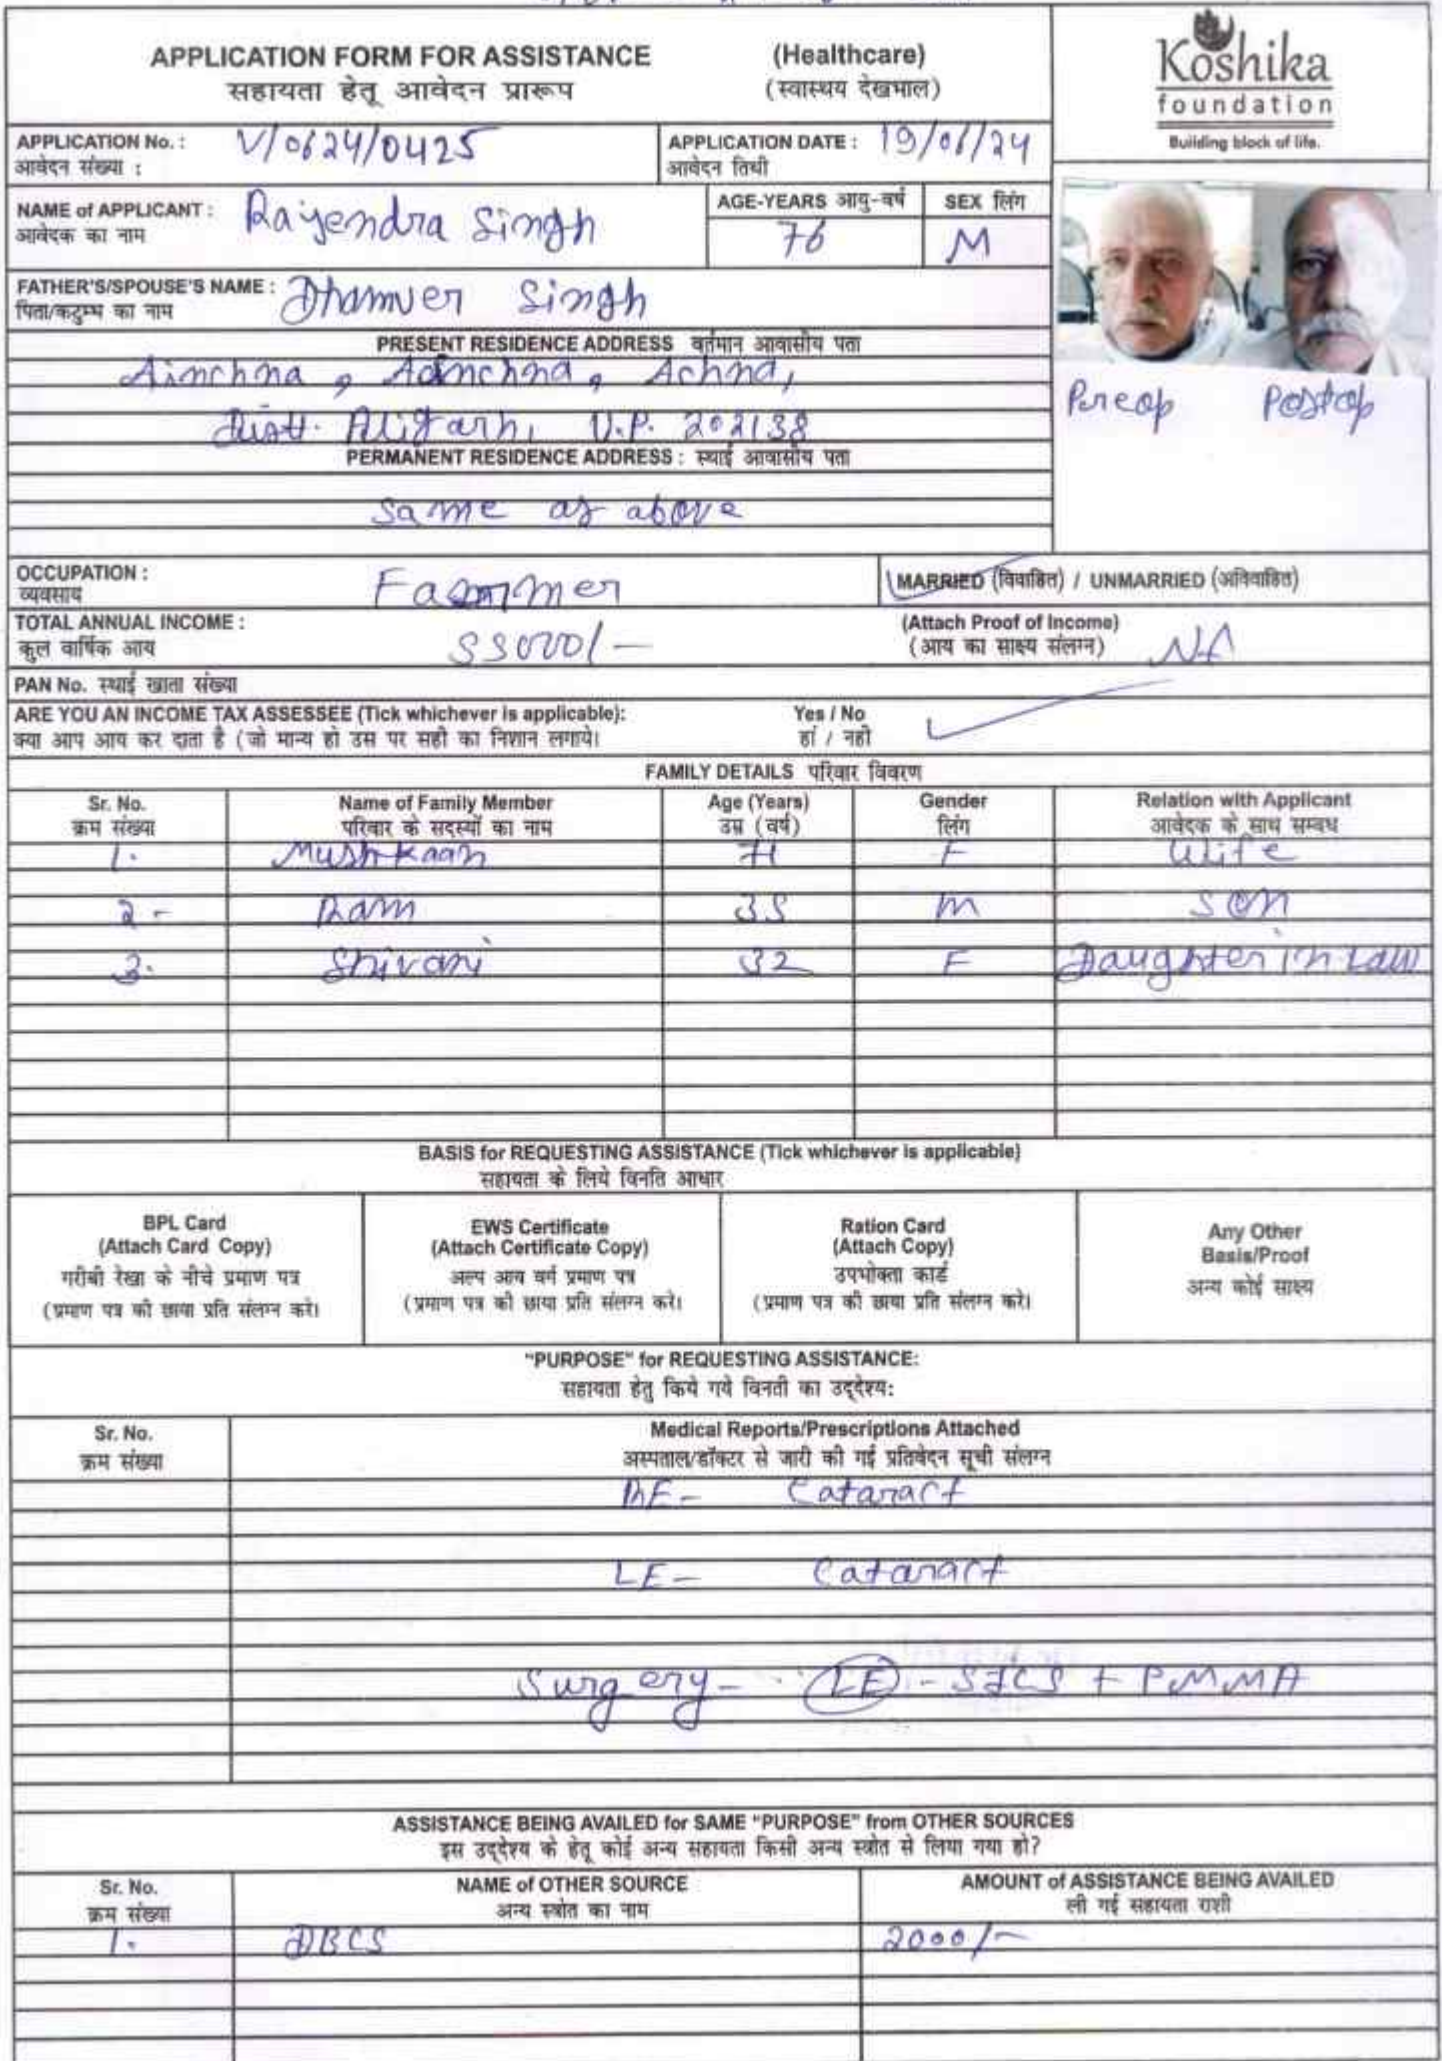 APPLICATION FORM FOR ASSISTANCE (Healthcare)
सहायता हेतू आवेदन प्रारूप (स्वास्थय देखभाल)
Koshika
foundation
Building block of life.
APPLICATION No. : V/0624/0425 APPLICATION DATE : 19/06/24
आवेदन संख्या : आवेदन तिथी
NAME of APPLICANT : Rajendra Singh AGE-YEARS आयु-वर्ष 76 SEX लिंग M
आवेदक का नाम
FATHER'S/SPOUSE'S NAME : Dhamver Singh
पिता/कटुम्भ का नाम
Preop Postop
PRESENT RESIDENCE ADDRESS वर्तमान आवासीय पता
Ainchna, Adnchna, Achna,
Distt. Aligarh, U.P. 202138
PERMANENT RESIDENCE ADDRESS : स्थाई आवासीय पता
Same as above
OCCUPATION : MARRIED (विवाहित) / UNMARRIED (अविवाहित)
व्यवसाय
TOTAL ANNUAL INCOME : 55000/- (Attach Proof of Income) NA
कुल वार्षिक आय (आय का साक्ष्य संलग्न)
PAN No. स्थाई खाता संख्या
ARE YOU AN INCOME TAX ASSESSEE (Tick whichever is applicable): Yes / No
क्या आप आय कर दाता है (जो मान्य हो उस पर सही का निशान लगाये। हां / नही
FAMILY DETAILS परिवार विवरण
Sr. No. Name of Family Member Age (Years) Gender Relation with Applicant
क्रम संख्या परिवार के सदस्यों का नाम उम्र (वर्ष) लिंग आवेदक के साथ सम्बध
1. Mushkaan 71 F Wife
2- Ram 35 M Son
3. Shivani 32 F Daughter in Law
BASIS for REQUESTING ASSISTANCE (Tick whichever is applicable)
सहायता के लिये विनति आधार
BPL Card
(Attach Card Copy)
गरीबी रेखा के नीचे प्रमाण पत्र
(प्रमाण पत्र की छाया प्रति संलग्न करे।
EWS Certificate
(Attach Certificate Copy)
अल्प आय वर्ग प्रमाण पत्र
(प्रमाण पत्र की छाया प्रति संलग्न करे।
Ration Card
(Attach Copy)
उपभोक्ता कार्ड
(प्रमाण पत्र की छाया प्रति संलग्न करे।
Any Other
Basis/Proof
अन्य कोई साक्ष्य
"PURPOSE" for REQUESTING ASSISTANCE:
सहायता हेतु किये गये विनती का उद्देश्य:
Sr. No. Medical Reports/Prescriptions Attached
क्रम संख्या अस्पताल/डॉक्टर से जारी की गई प्रतिवेदन सूची संलग्न
RE- Cataract
LE- Cataract
Surgery- LE - SICS + PMMA
ASSISTANCE BEING AVAILED for SAME "PURPOSE" from OTHER SOURCES
इस उद्देश्य के हेतू कोई अन्य सहायता किसी अन्य स्त्रोत से लिया गया हो?
Sr. No. NAME of OTHER SOURCE AMOUNT of ASSISTANCE BEING AVAILED
क्रम संख्या अन्य स्त्रोत का नाम ली गई सहायता राशी
1. DBCS 2000/-